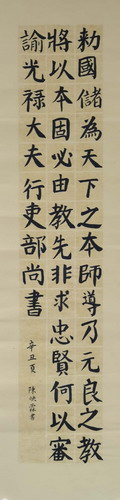 勅國儲為天下之本師導乃元良之教
將以本固必由教先非求忠賢何以審
諭光禄大夫行吏部尚書
辛丑夏 陳